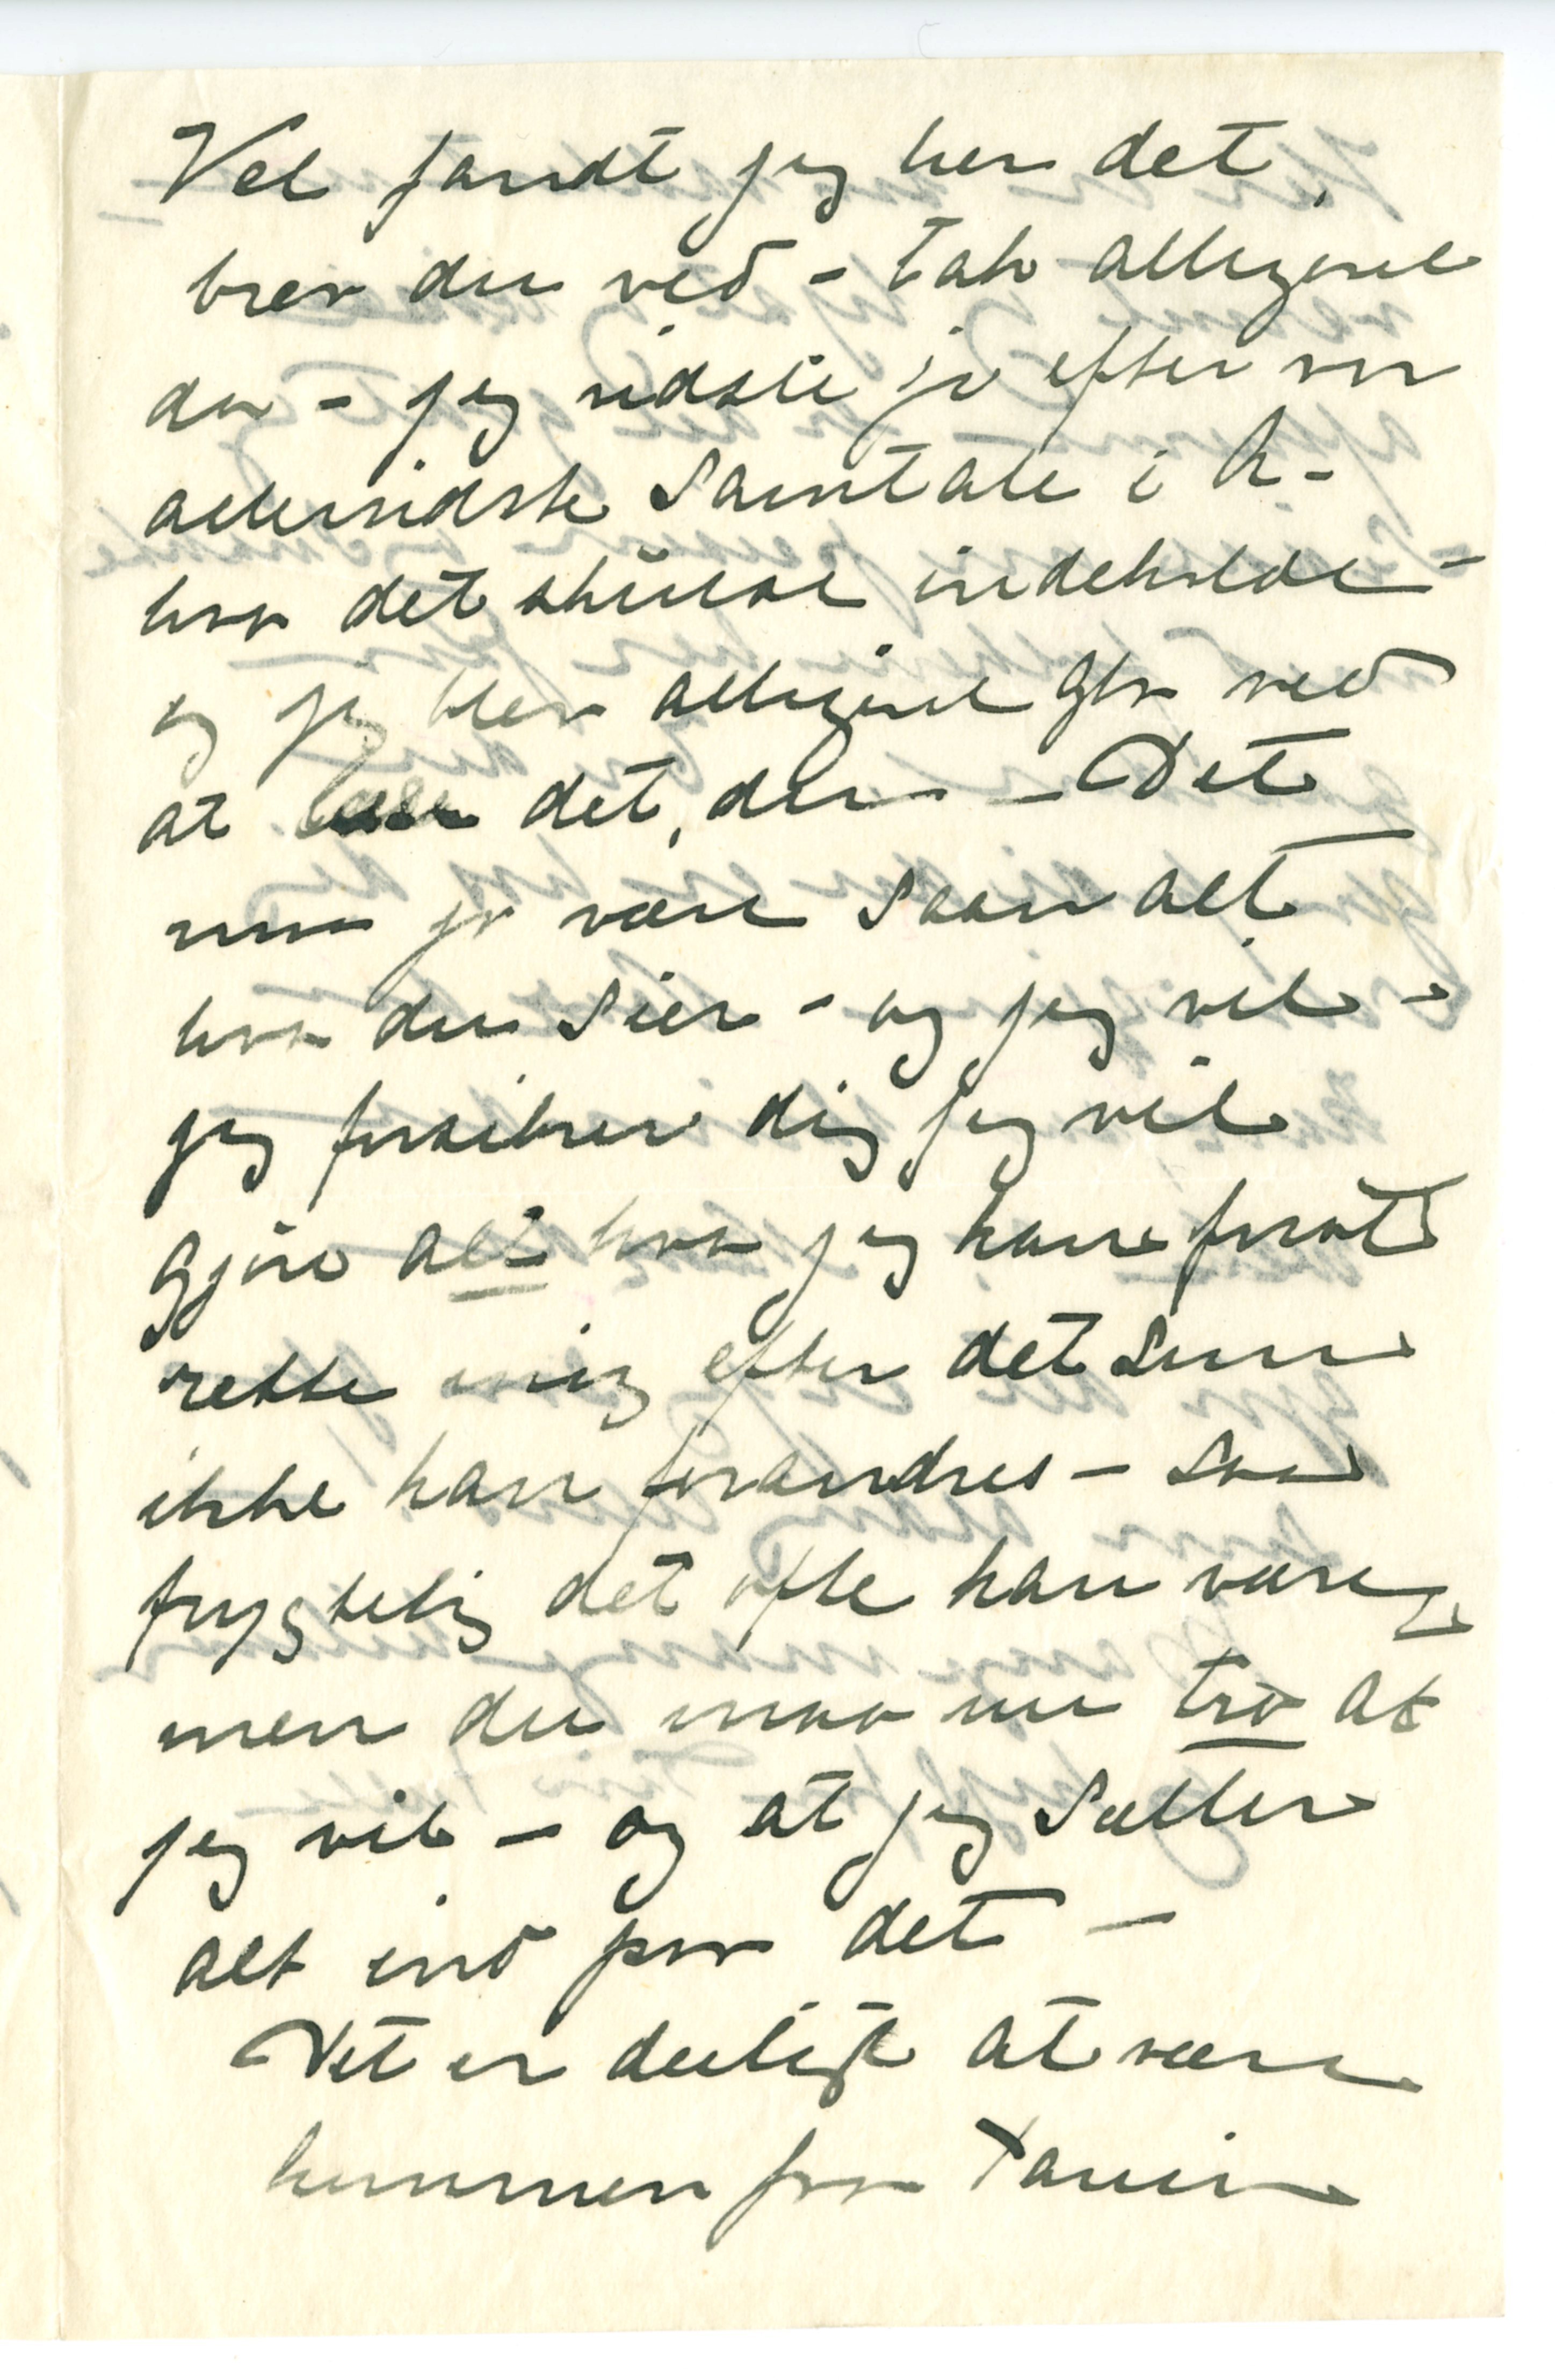 Vel fandt jeg her det,
brev du ved – tak alligevel
da – jeg vidste jo efter vor
allersidste Samtale i K –
hvad det skulde indeholde –
og jeg blev alligevel glad ved
at læse det, der – Det
maa jo være saan alt
hvad du Sier – og jeg vil –
jeg forsikrer dig jeg vil
gjøre alt hvad jeg kan for at
rette mig efter det Som
ikke kan forandres – Saa
frygtelig det ofte kan være –
men du maa nu tro at
jeg vil – og at jeg Sætter
alt ind paa det –
Det er deiligt at være
kommen fra